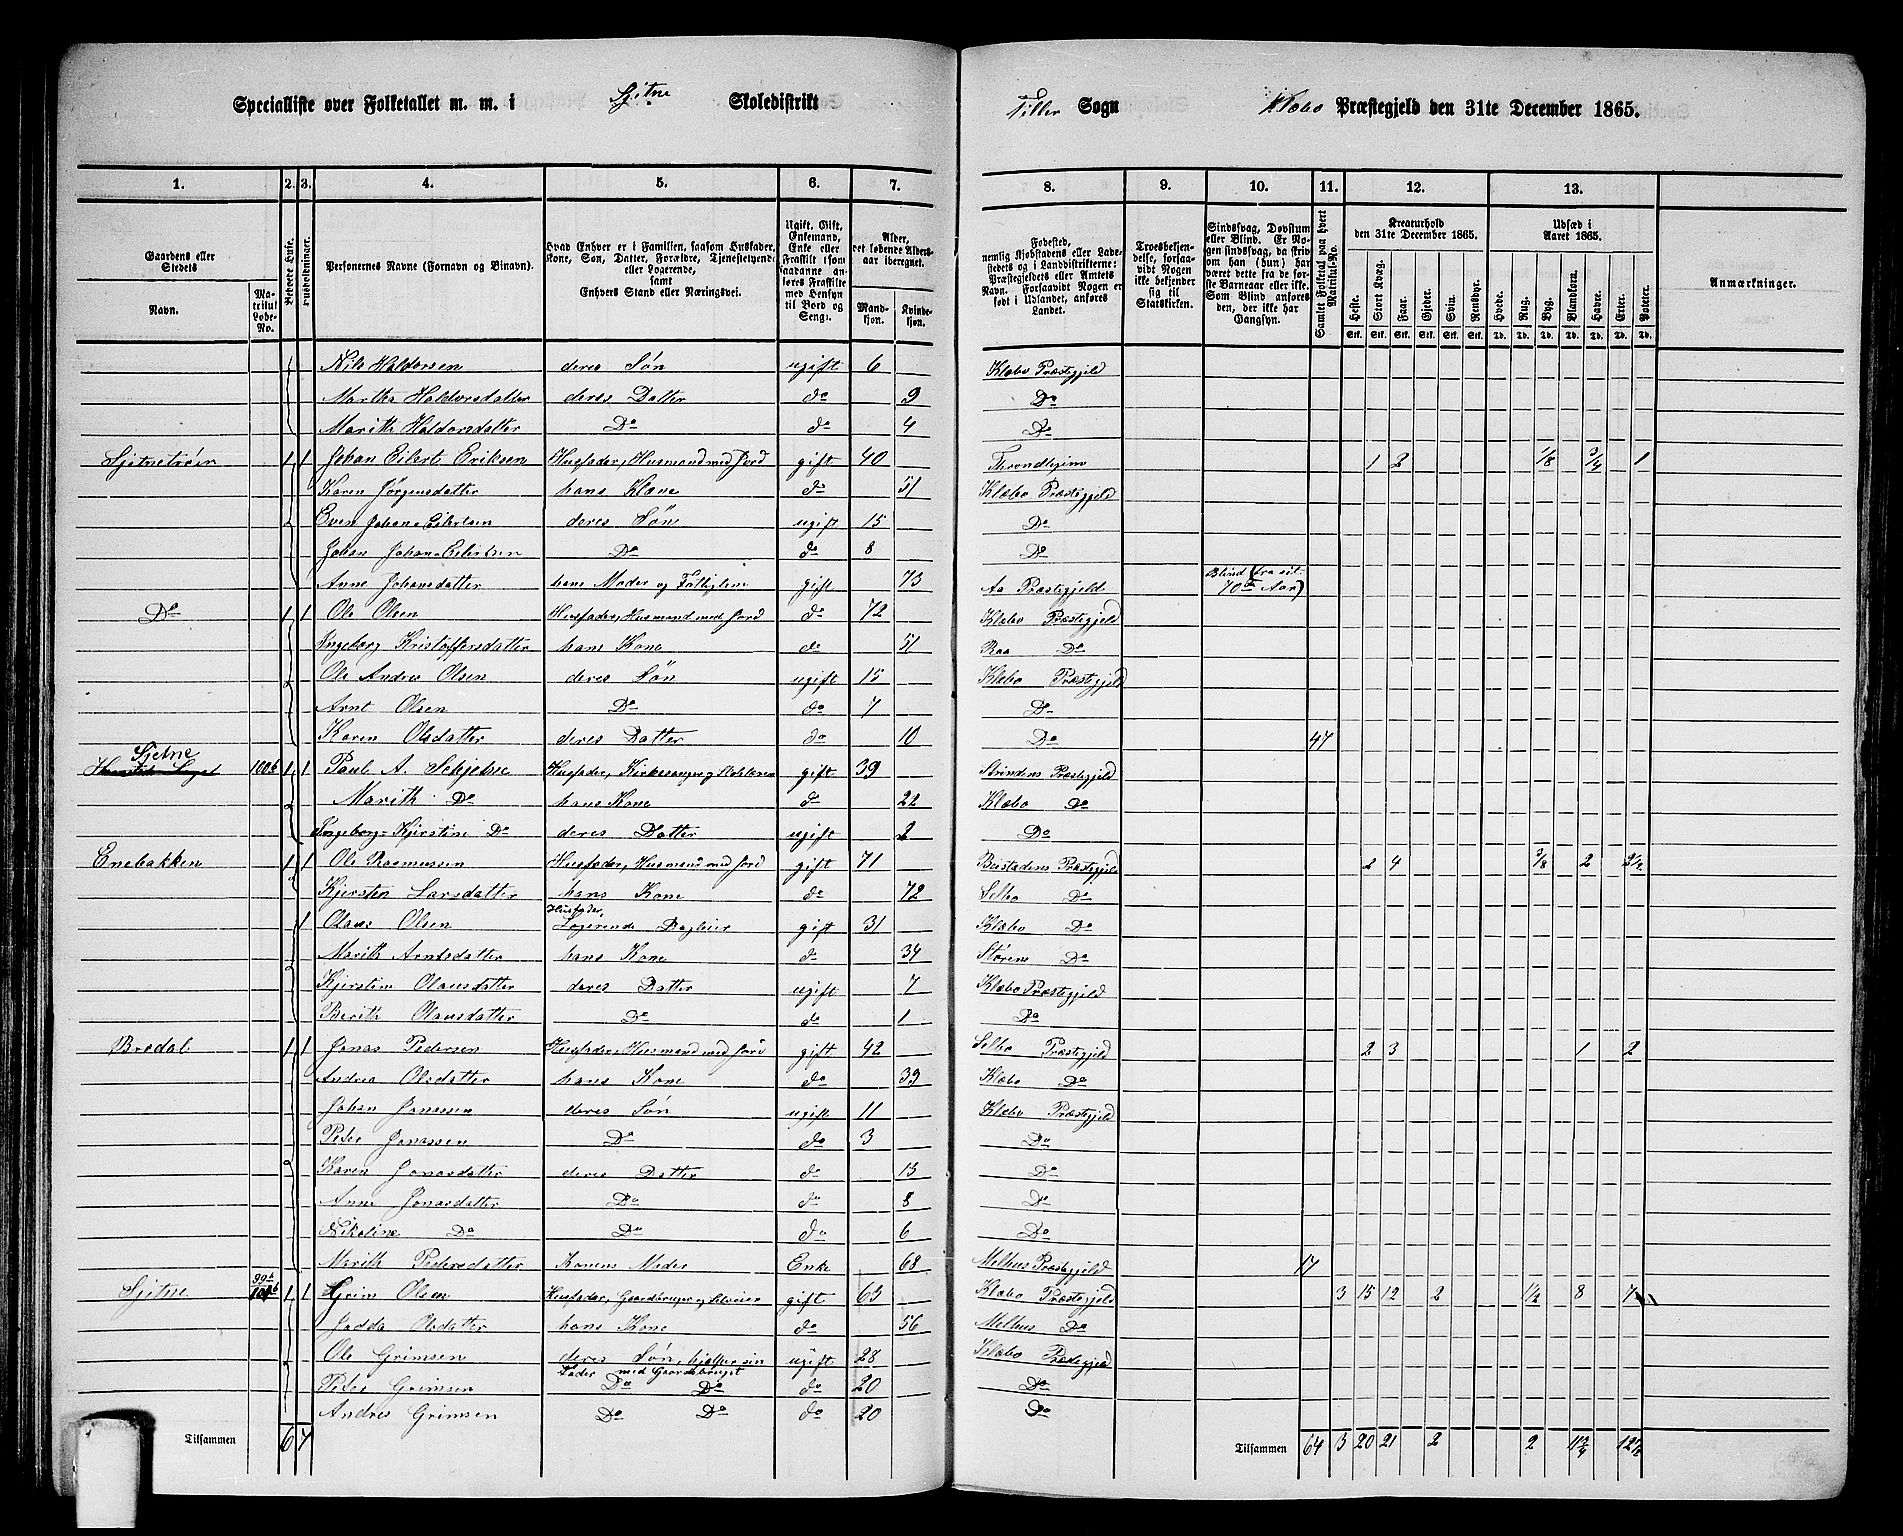 Specialliste over Folketallet m. m. i Sjetne Skoledistrikt Tiller Sogn Klæbo Præstegjeld den 31te December 1865.
1. 2. 3. 4. 5. 6. 7. 8. 9. 10. 11. 12. 13.
Gaardens eller Stedets Navn. Matrikul Løbe-No. Beboede Huse. Husholdninger. Personernes Navne (Fornavn og Binavn). Hvad Enhver er i Familien, saasom Husfader, Kone, Søn, Datter, Forældre, Tjenestetyende eller Logerende, samt Enhvers Stand eller Næringsvei. Ugift, Gift, Enkemand, Enke eller Fraskilt Alder, det løbende Alders-aar iberegnet. Mandkjøn. Kvindekjøn. Fødested, Troesbekjendelse, forsaavidt Nogen ikke bekjender sig til Statskirken. Sindssvag, Døvstum eller Blind. Samlet Folketal paa hvert Matrikul-No. Kreaturhold den 31te December 1865. Heste. Stort Kvæg. Faar. Gjeder. Svin. Rensdyr. Udsæd i Aaret 1865. Hvede. Rug. Byg. Blandkorn. Havre. Erter. Poteter. Anmærkninger.
Nils Haldorsen deres Søn ugift 6 Klæbo Præstegjeld
Martha Haldorsdatter deres Datter do 9 Do
Marith Haldorsdatter Do do 4 Do
Sjetnetrøen 1 1 Johan Eilert Eriksen Husfader, Husmand med Jord gift 40 Throndhjem 1 2 1/8 3/4 1
Karen Jørgensdatter hans Kone do 51 Klæbo Præstegjeld
Even Johan-Eilertsen deres Søn ugift 15 Do
Johan Johan-Eilertsen Do do 8 Do
Anne Johansdatter hans Moder og Fattiglem gift 73 Aa Præstegjeld Blind (fra sit 70de Aar)
Do 1 1 Ole Olsen Husfader, Husmand med Jord do 72 Klæbo Præstegjeld
Ingeborg Kristoffersdatter hans Kone do 51 Do
Ole Andres Olsen deres Søn ugift 15 Klæbo Præstegjeld
Arnt Olsen Do do 7 Do
Karen Olsdatter deres Datter do 10 Do 47
Sjetne 100b 1 1 Paul A. Schjetne Husfader, Kirkesanger og Skolelærer gift 39 Strindens Præstegjeld
Marith Do hans Kone do 22 Klæbo Do
Ingeborg-Kjerstine Do deres Datter ugift 2 Do
Enebakken 1 1 Ole Rasmussen Husfader, Husmand med Jord gift 71 Beistadens Præstegjeld 2 4 3/8 2 3 1/2
Kjersten Larsdatter hans Kone do 72 Selbo Do
1 Olaus Olsen Husfader, Logerende Daglejer gift 31 Klæbo Do
Marith Arntsdatter hans Kone do 34 Størens Do
Kjerstine Olausdatter deres Datter ugift 7 Klæbo Præstegjeld
Berith Olausdatter Do do 1 Do
Bredal 1 1 Jonas Pedersen Husfader, Husmand med Jord gift 42 Selbo Præstegjeld 2 3 1 2
Andrea Olsdatter hans Kone do 39 Klæbo Do
Johan Jonassen deres Søn ugift 11 Klæbo Præstegjeld
Peter Jonassen Do do 3 Do
Karen Jonasdatter deres Datter do 13 Do
Anne Jonasdatter Do do 8 Do
Nikoline Do Do do 6 Do
Marith Pedersdatter Konens Moder Enke 68 Melhus Præstegjeld 17
Sjetne 99b 1 1 Grim Olsen Husfader, Gaardbruger og Selveier gift 63 Klæbo Præstegjeld 3 15 12 2 1 1/2 8 7
Jadda Olsdatter hans Kone do 56 Melhus Do
Ole Grimsen deres Søn, hjælper sin Fader med Gaardsbruget ugift 28 Klæbo Præstegjeld
Peter Grimsen Do Do do 20 Do
Andres Grimsen Do Do do 20 Do
Tilsammen 6 7 Tilsammen 64 3 20 21 2 2 11 3/4 12 1/2